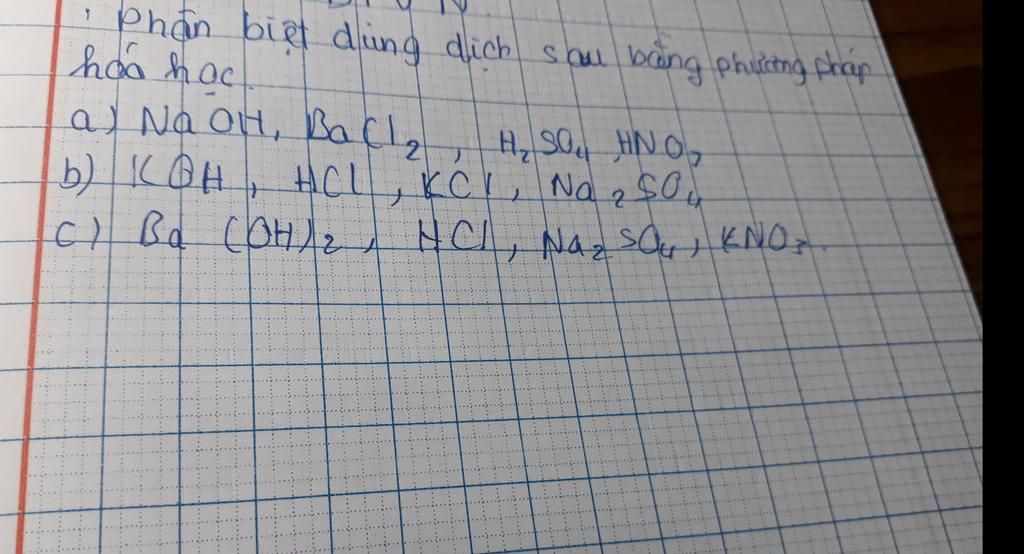 Phân biệt dùng dịch sau bằng phương pháp
hoá học
a) NaOH, BaCl₂, H₂SO₄, HNO₃
b) KOH, HCl, KCl, Na₂SO₄
c) Ba(OH)₂, HCl, Na₂SO₄, KNO₃.